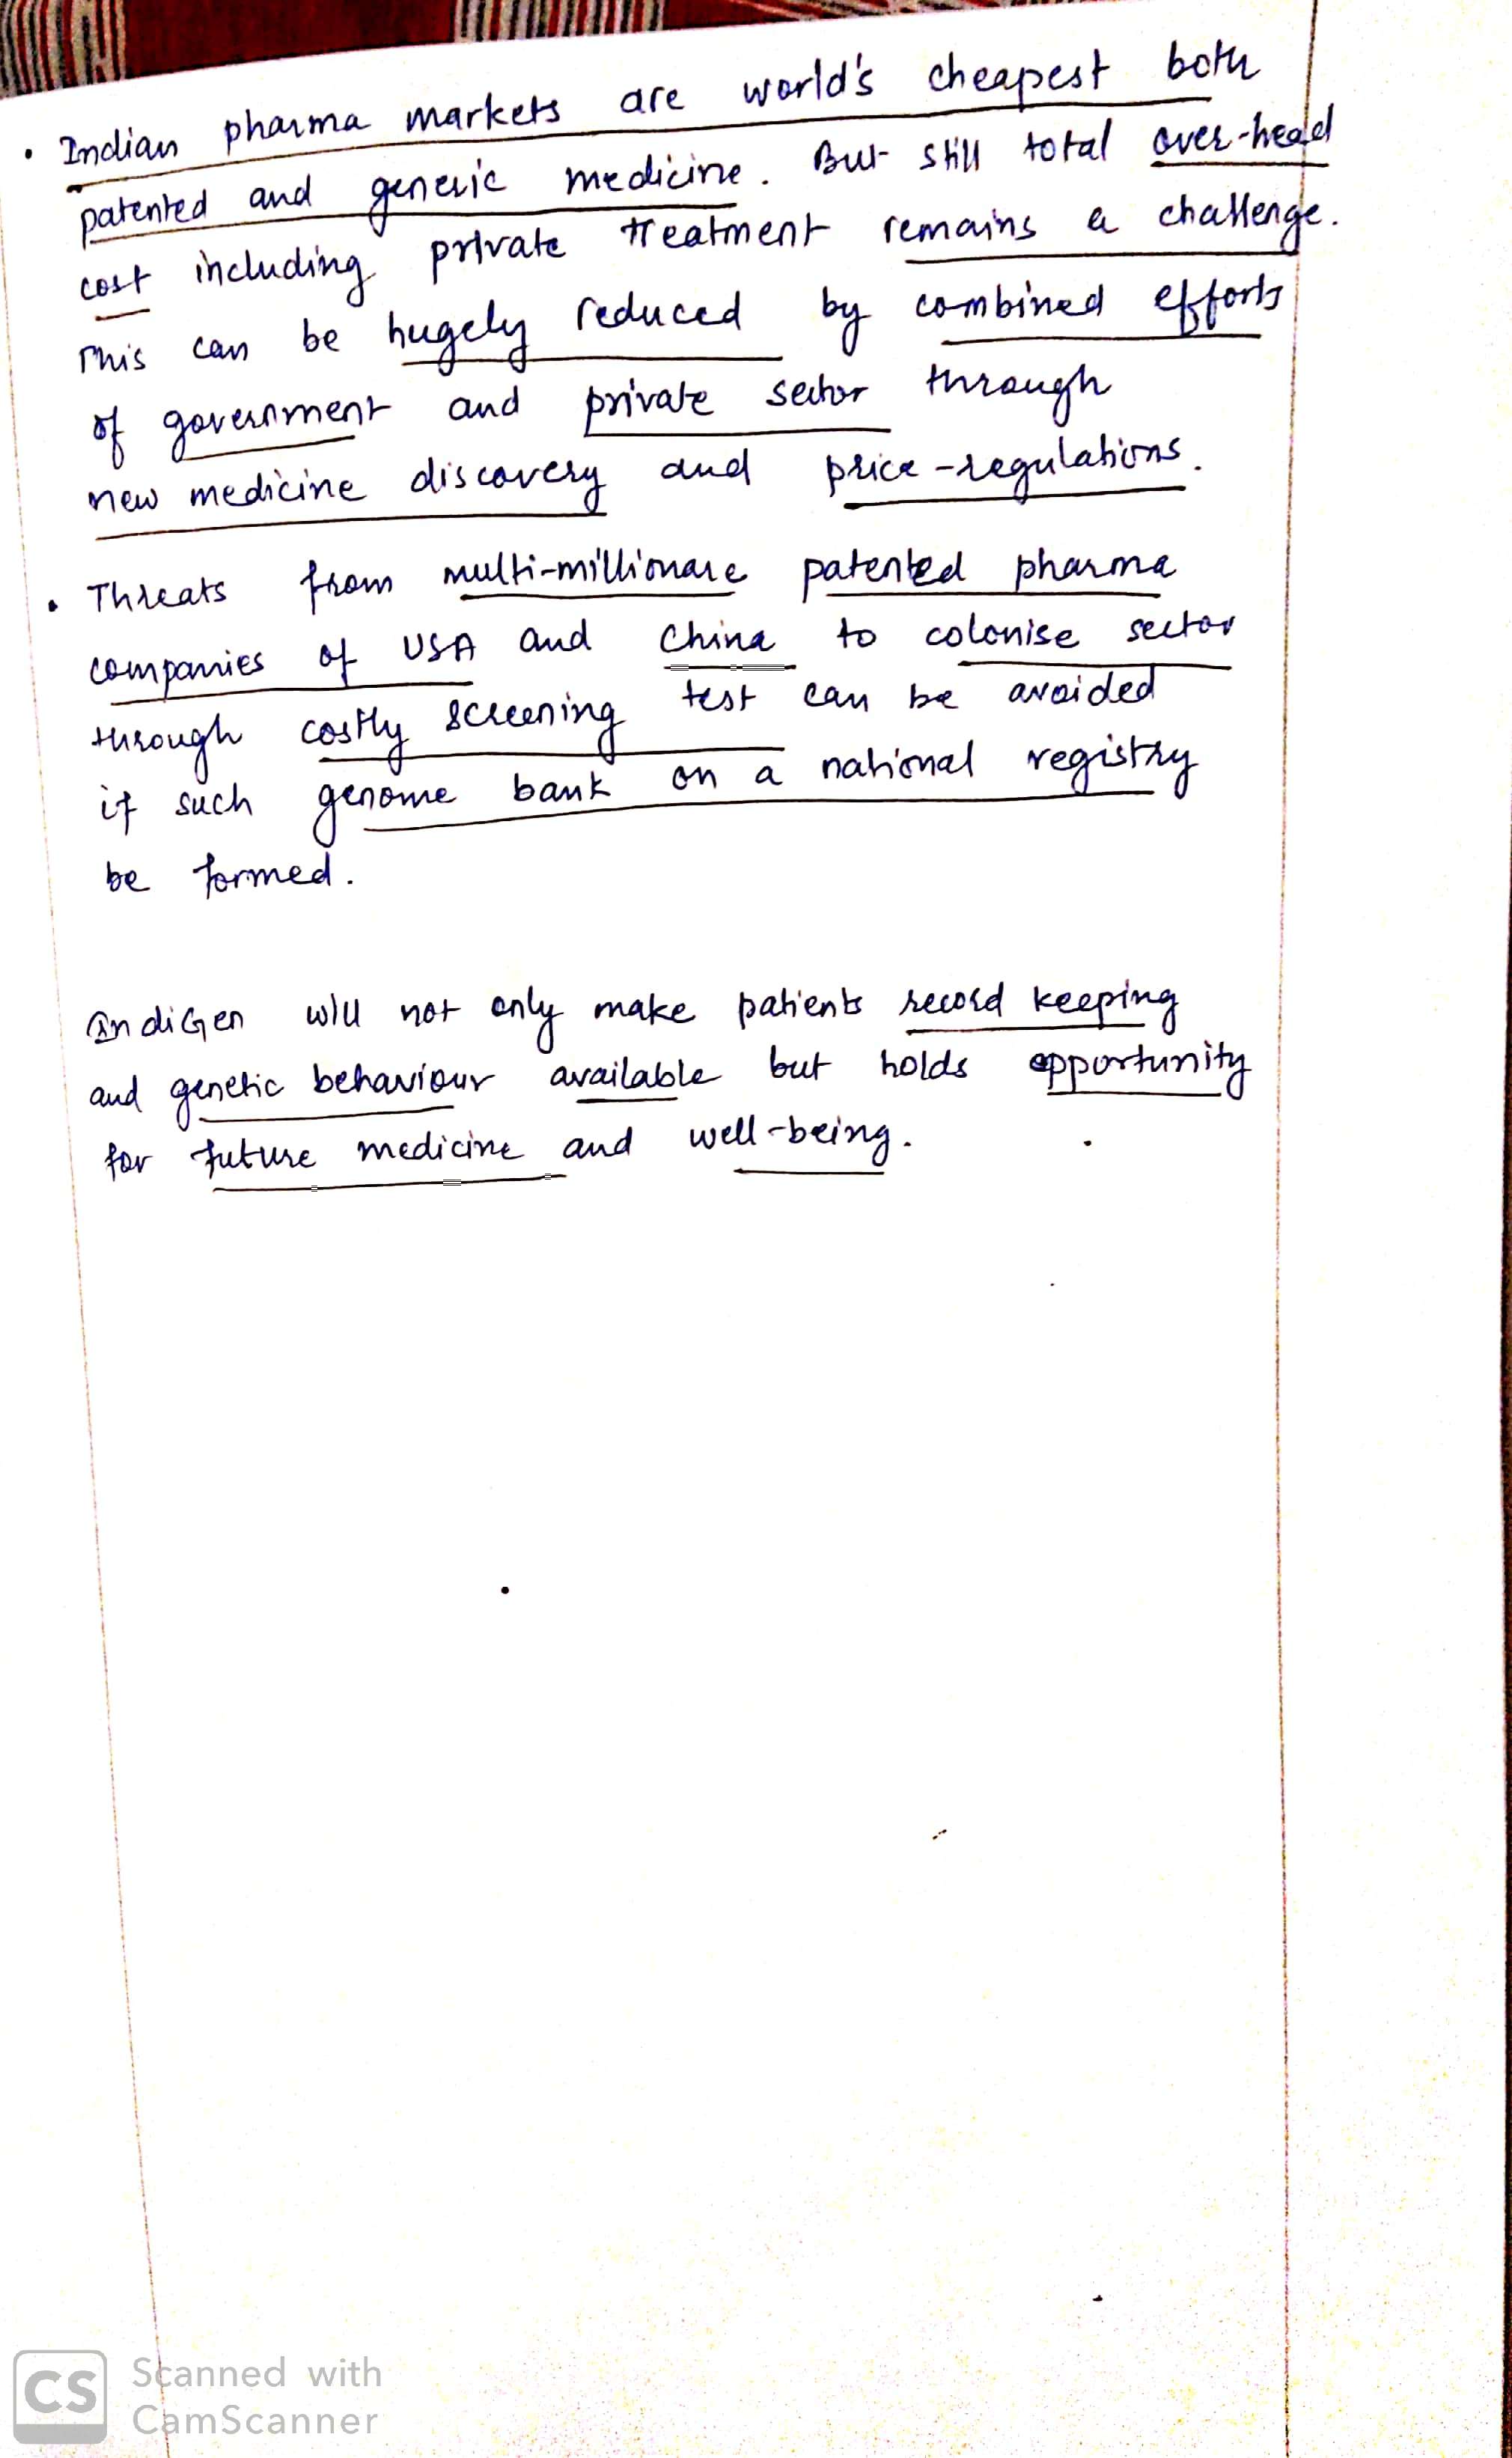 • Indian pharma markets are world's cheapest both
patented and generic medicine. But still total over-head
cost including private treatment remains a challenge.
This can be hugely reduced by combined efforts
of government and private sector through
new medicine discovery and price-regulations.
• Threats from multi-millionare patented pharma
companies of USA and China to colonise sector
through costly screening test can be avoided
if such genome bank on a national registry
be formed.
IndiGen will not only make patients record keeping
and genetic behaviour available but holds opportunity
for future medicine and well-being.
CS Scanned with
CamScanner